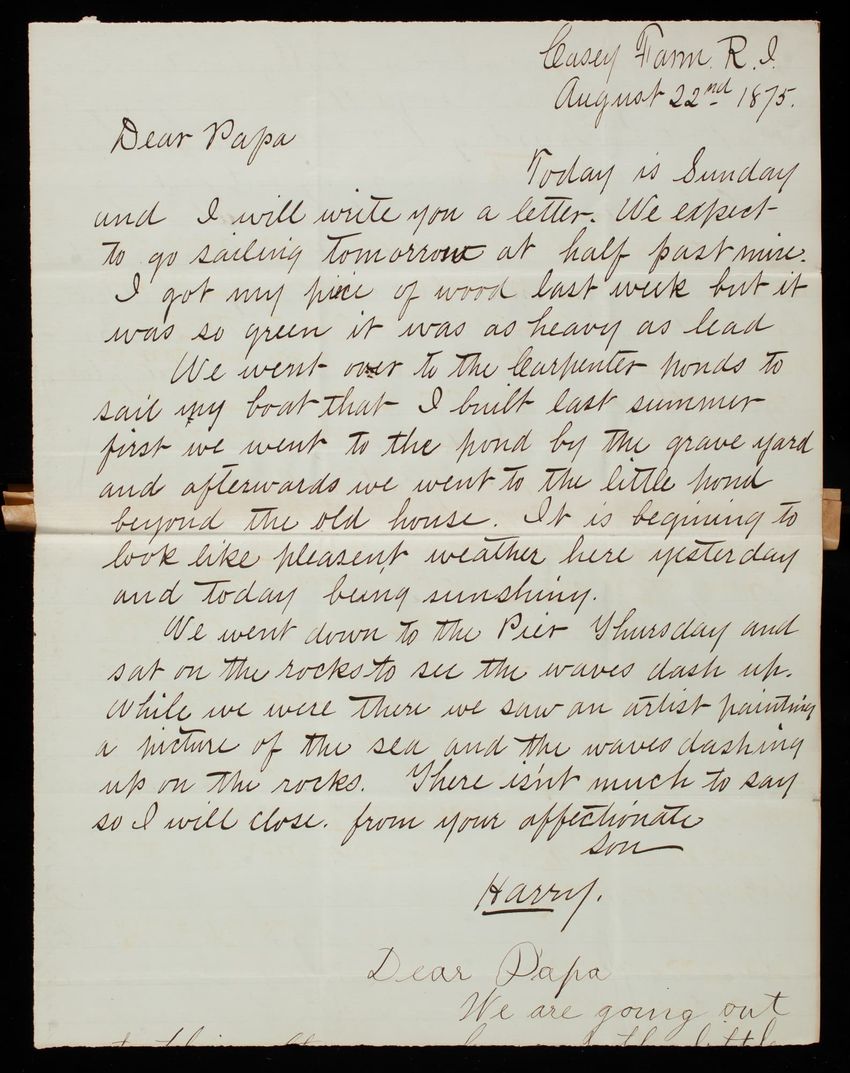 Casey Farm. R. I.
August 22nd 1875.
Dear Papa
Today is Sunday
and I will write you a letter. We expect
to go sailing tomorrow at half past nine.
I got my piece of wood last week but it
was so green it was as heavy as lead
We went over to the Carpenter ponds to
sail my boat that I built last summer
first we went to the pond by the grave yard
and afterwards we went to the little pond
beyond the old house. It is begining to
look like pleasent weather here yesterday
and today being sunshiny.
We went down to the Pier Thursday and
sat on the rocks to see the waves dash up.
While we were there we saw an artist painting
a picture of the sea and the waves dashing
up on the rocks. There is'nt much to say
so I will close. from your affectionate
son
Harry.
Dear Papa
We are going out
the little